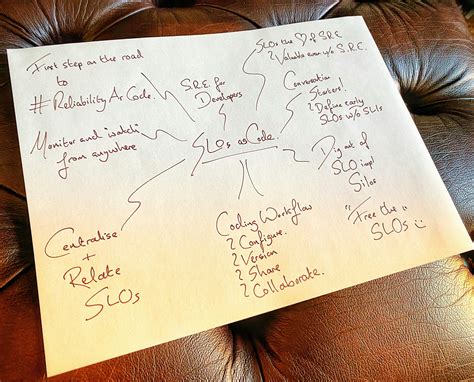 First step on the road
to
#ReliabilityAsCode.
Monitor and "watch"
from anywhere
Centralise
+
Relate
SLOs
S.R.E. for
Developers
SLOs as Code.
Coding Workflow
Configure.
Version
Share
Collaborate.
SLOs the ♡ of SRE
Valuable even w/o S.R.E.
Conversation
Starters!
Define early
SLOs w/o SLIs
Dig out of
SLO impl
Silos
"Free the
SLOs"